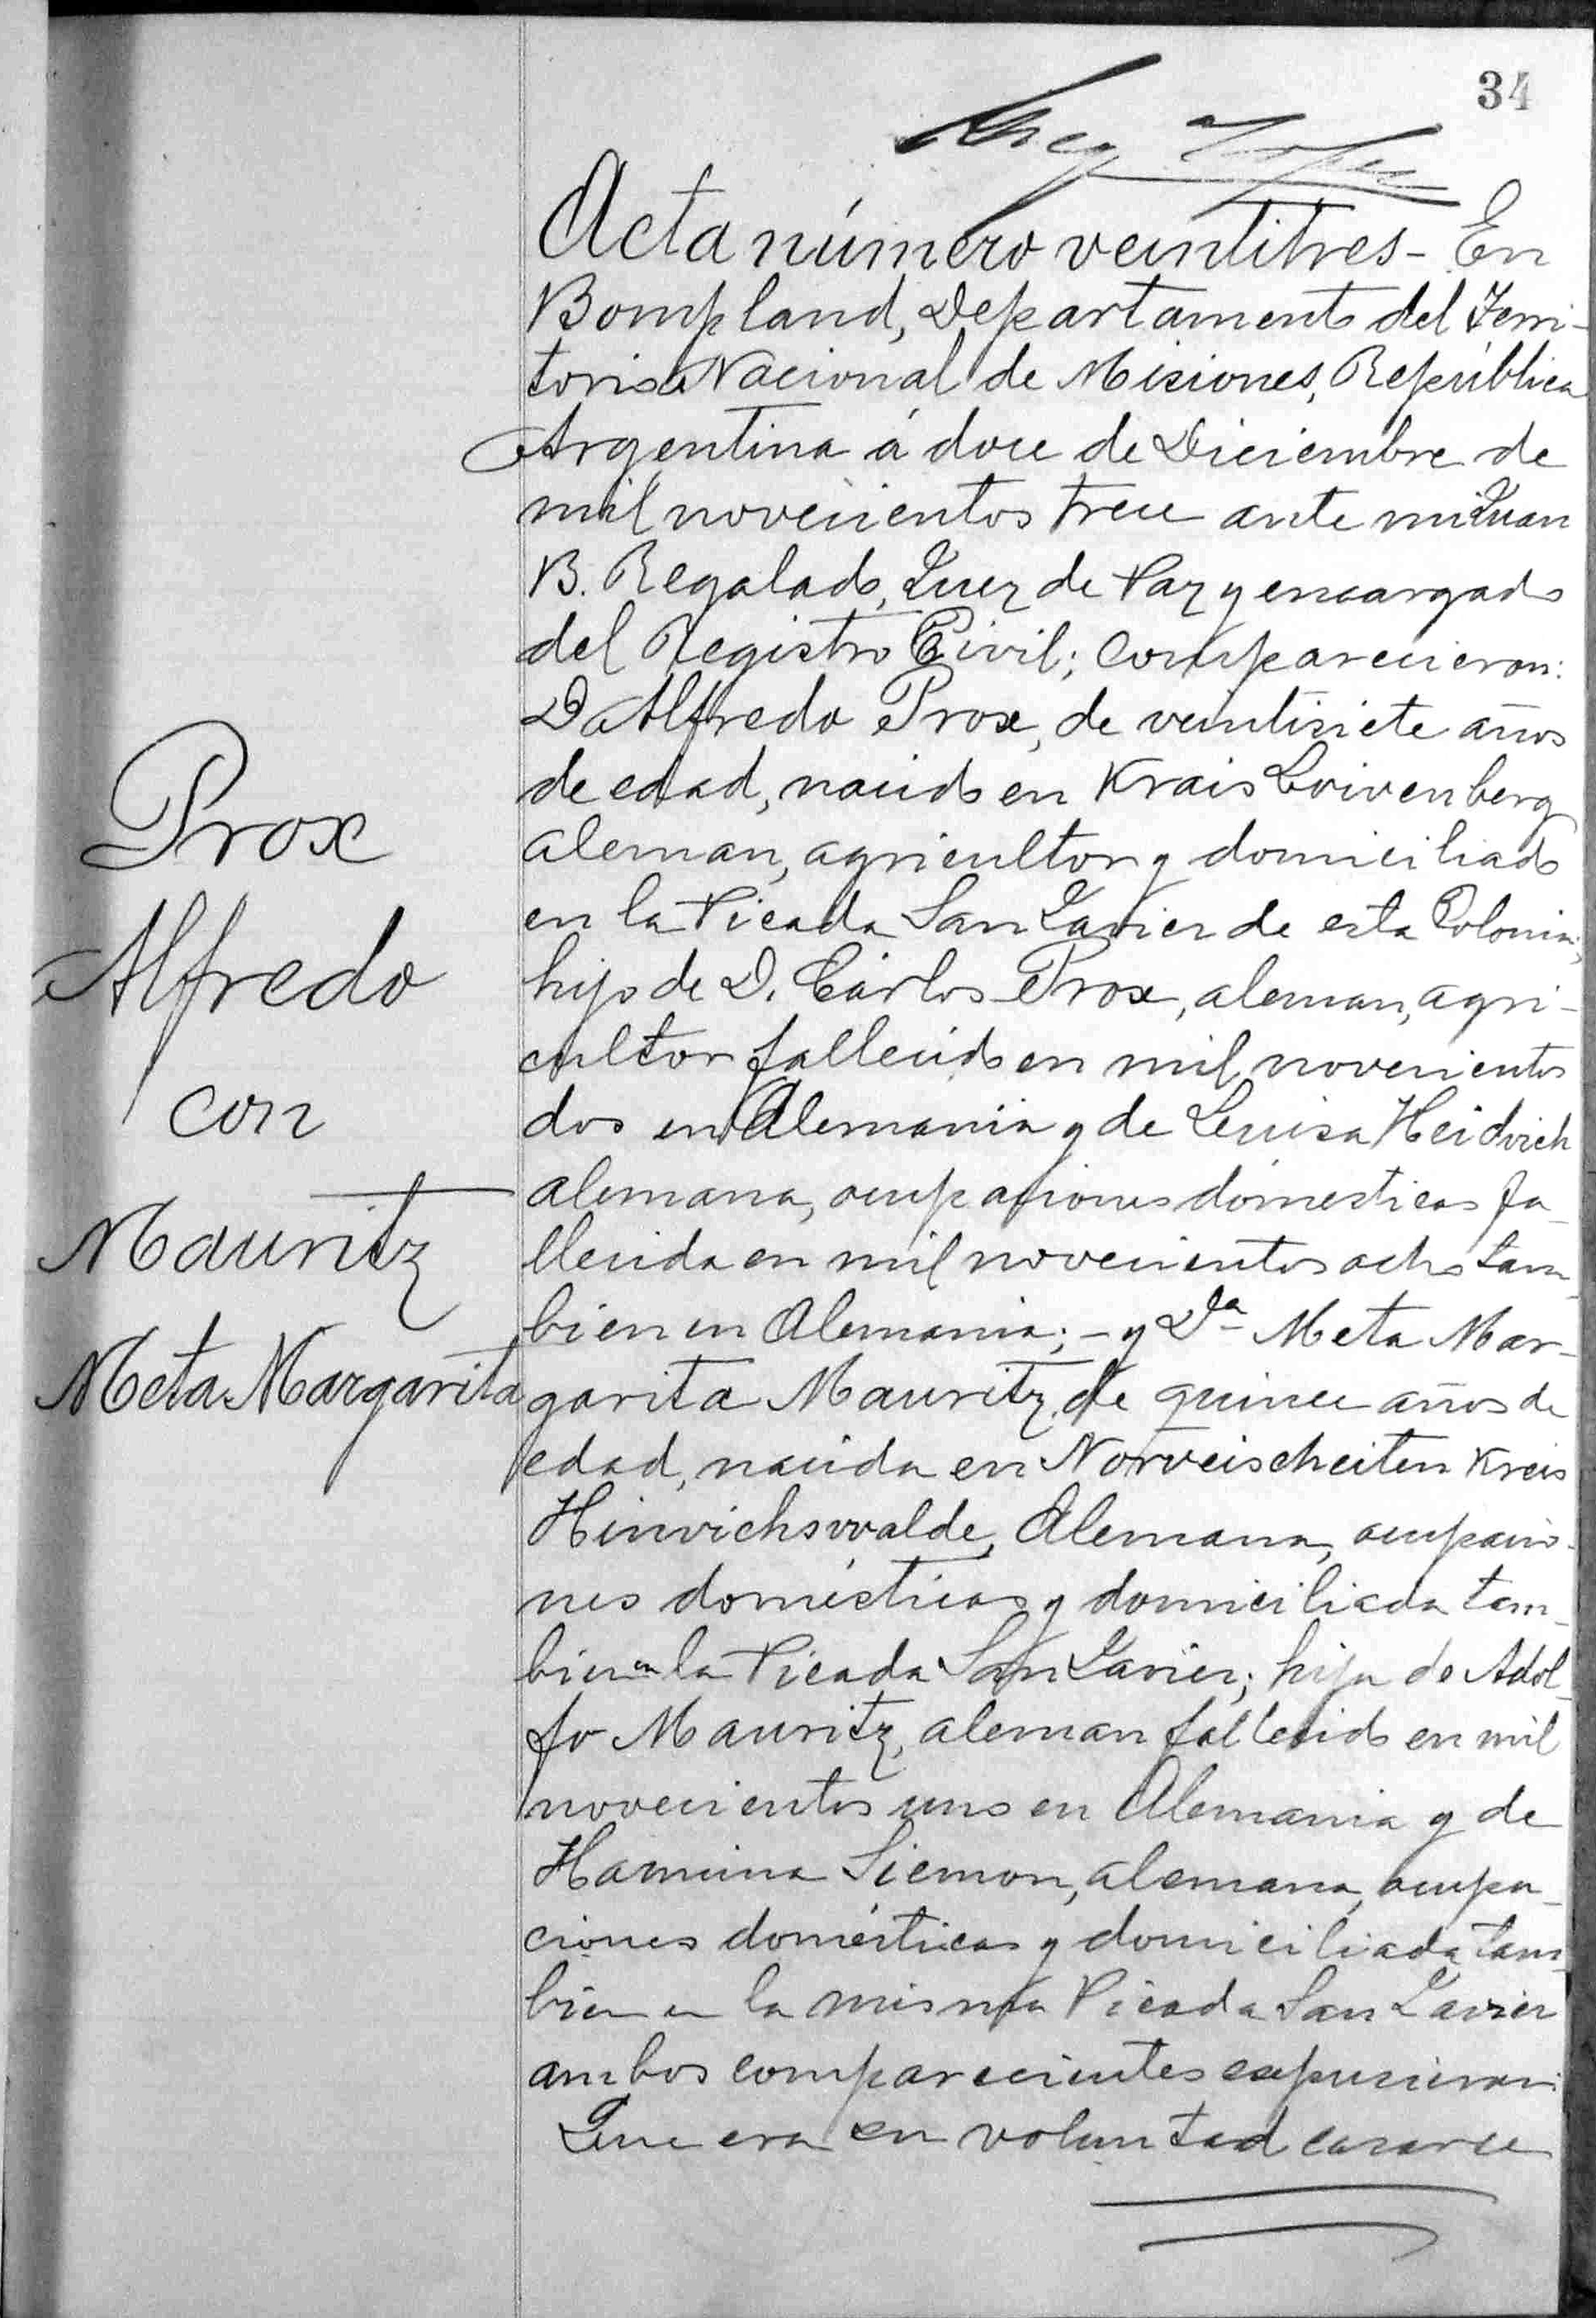 34
Acta número veintitres - En
Bompland, Departamento del Terri-
torio Nacional de Misiones, República
Argentina á doce de Diciembre de
mil novecientos trece ante mi Juan
B. Regalado, Juez de Paz y encargado
del Registro Civil; comparecieron:
D. Alfredo Prox, de veintisiete años
de edad, nacido en Krais Loivenberg
aleman, agricultor y domiciliado
en la Picada San Javier de esta Colonia;
hijo de D. Cárlos Prox, aleman, agri-
cultor fallecido en mil novecientos
dos en Alemania y de Luisa Heidrich
alemana, ocupaciones domésticas fa-
llecida en mil novecientos ocho tam-
bien en Alemania; - y Da Meta Mar-
garita Mauritz, de quince años de
edad, nacida en Norveischeiten Kreis
Hinrichswalde, Alemana, ocupacio-
nes domésticas y domiciliada tam-
bien en la Picada San Javier; hija de Adol-
fo Mauritz, aleman fallecido en mil
novecientos uno en Alemania y de
Hamina Siemon, alemana, ocupa-
ciones domésticas y domiciliada tam-
bien en la misma Picada San Javier
ambos comparecientes expusieron:
Que era su voluntad casarse
Prox
Alfredo
con
Mauritz
Meta Margarita